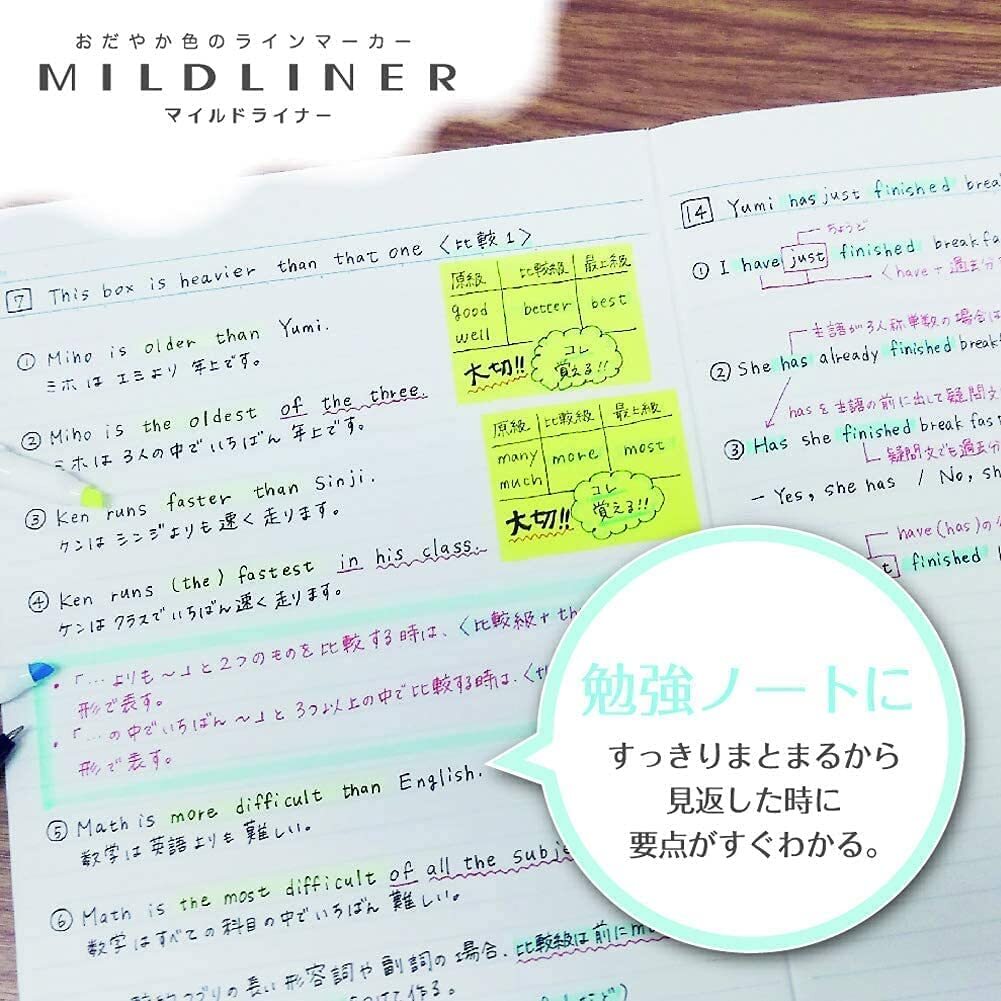 おだやか色のラインマーカー
MILDLINER
マイルドライナー
7 This box is heavier than that one 〈比較1〉
① Miho is older than Yumi.
ミホは エミより 年上です。
② Miho is the oldest of the three.
ミホは 3人の中でいちばん 年上です。
③ Ken runs faster than Sinji.
ケンは シンジよりも 速く 走ります。
④ Ken runs (the) fastest in his class.
ケンは クラスで いちばん 速く 走ります。
・「…よりも〜」と2つのものを比較する時は、〈比較級+th
形で表す。
・「…の中でいちばん〜」と3つ以上の中で比較する時は、〈th
形で表す。
⑤ Math is more difficult than English.
数学は英語よりも 難しい。
⑥ Math is the most difficult of all the subje
数学はすべての科目の中でいちばん 難しい。
つづりの長い形容詞や副詞の場合、比較級は前にm
けて作る。
原級 比較級 最上級
good better best
well
大切!!
コレ
覚える!!
原級 比較級 最上級
many more most
much
大切!!
コレ
覚える!!
14 Yumi has just finished brea
ちょうど
① I have just finished breakfa
〈have+過去分
主語が3人称単数の場合は
② She has already finished break
hasを主語の前に出して疑問文
③ Has she finished breakfas
疑問文でも過去分
− Yes, she has / No, sh
have(has)の
t finished b
勉強ノートに
すっきりまとまるから
見返した時に
要点がすぐわかる。